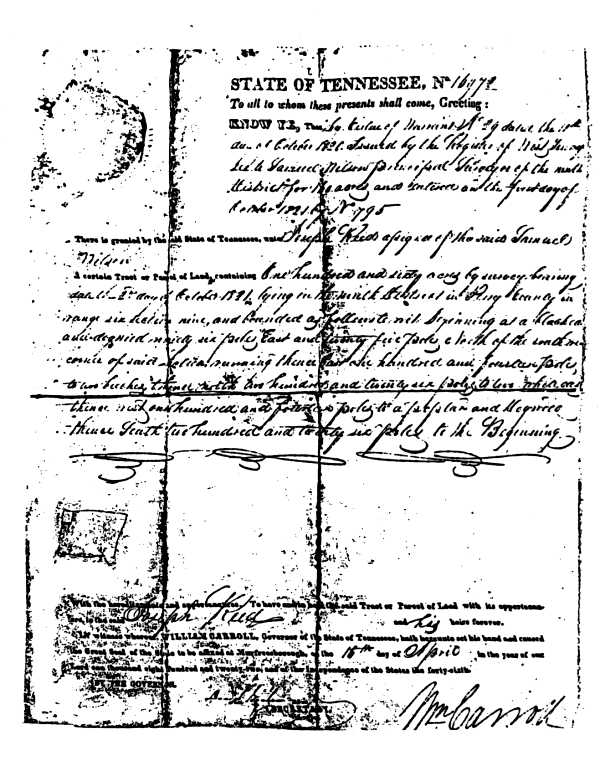 STATE OF TENNESSEE, No 16978
To all to whom these presents shall come, Greeting:
KNOW YE, That by Virtue of Warrant No 29 dated the
day of October 1821. Issued by the Register of West Tennessee
to Samuel Wilson principal Surveyor of the ninth
District for 160 acres and entered on the first day of
October 1821 by No 795
There is granted by the said State of Tennessee, unto Joseph Reed assignee of the said Samuel
Wilson
A certain Tract or Parcel of Land, containing One hundred and sixty acres by survey bearing
date the 2d day of October 1821, lying in the ninth District in Perry County in
range six section nine, and bounded as follows to wit. Beginning at a black oak
ninety six poles East and twenty five poles North of the south
corner of said section running thence East one hundred and fourteen poles
to two thence north two hundred and twenty six poles to two white oaks
thence west one hundred and fourteen poles to a poplar and dogwood
thence South two hundred and twenty six poles to the Beginning
With the hereditaments and appurtenances. To have and to hold the said Tract or Parcel of Land with its appurtenan-
ces, to the said Joseph Reed
and his heirs forever.
In witness whereof, WILLIAM CARROLL, Governor of the State of Tennessee, hath hereunto set his hand and caused
the Great Seal of the State to be affixed at Murfreesborough on the 15th day of April in the year of our
Lord one thousand eight hundred and twenty-two, and of the Independence of the States the forty-sixth.
BY THE GOVERNOR.
SECRETARY.
Wm Carroll